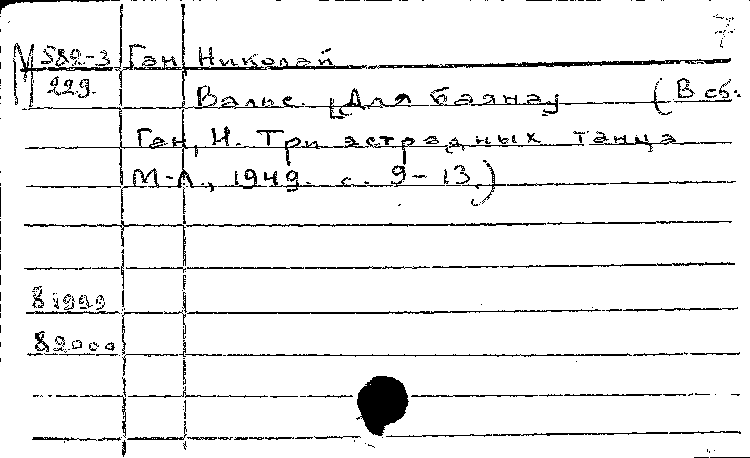 7
М 582-3 Ган Николай
229. Вальс. [Для баяна] (В сб.
Ган, Н. Три эстрадных танца
М-Л., 1949. с. 9-13.)
81999
82000